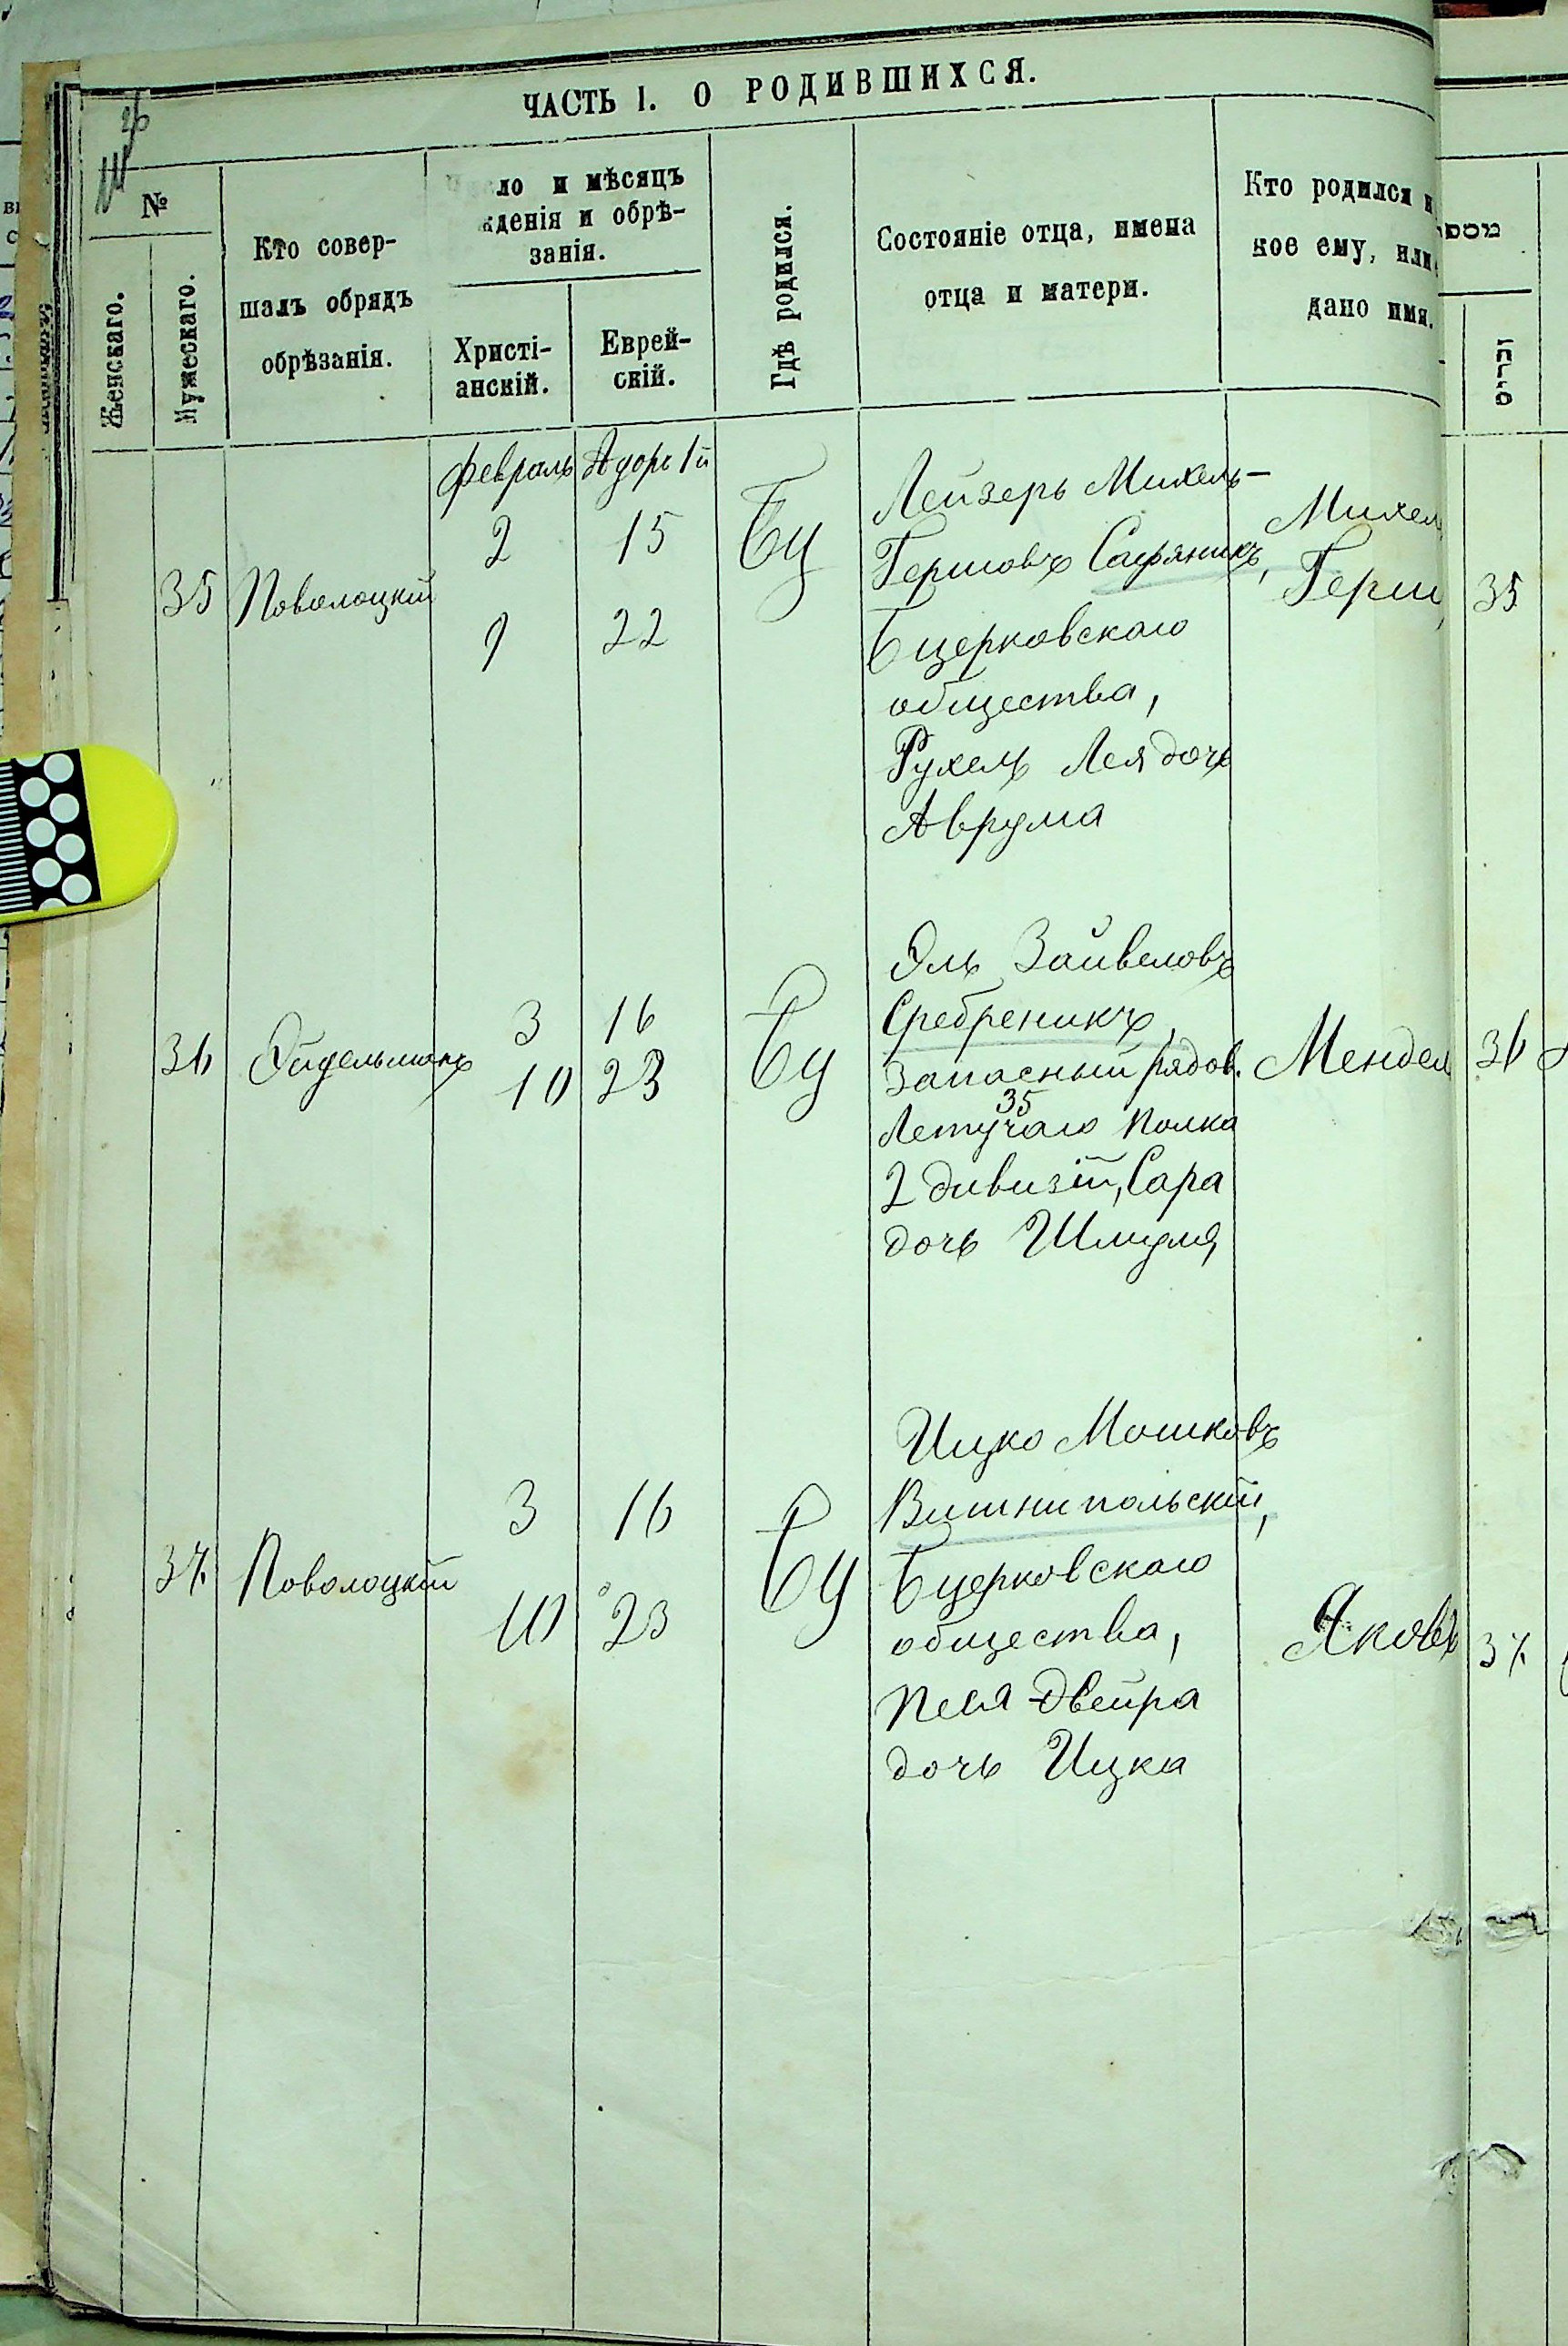 ЧАСТЬ I. О РОДИВШИХСЯ.
26
№
Женскаго.
Мужескаго.
Кто совер-
шалъ обрядъ
обрѣзанія.
ло и мѣсяцъ
жденія и обрѣ-
занія.
Христі-
анскій.
Еврей-
скій.
Гдѣ родился.
Состояніе отца, имена
отца и матери.
Кто родился и
кое ему, или
дано имя.
מספר
זכרים
Февраль Адоръ 1й
35 Поволоцкій
2 15
9 22
БЦ
Лейзеръ Михель-
Гершовъ Сафяникъ,
Бцерковскаго
общества,
Рухель Лея дочь
Аврума
Михель
Герш
35
36 Эйдельманъ
3 16
10 23
БЦ
Эль Зайвеловъ
Сребреникъ,
Запасный рядов.
35
Летучаго полка
2 дивизій, Сара
дочь Шмуля,
Мендел
36
37 Поволоцкій
3 16
10 23
БЦ
Ицко Мошковъ
Вишнипольскій,
Бцерковскаго
общества,
Песя Двейра
дочь Ицка
Яковъ
37